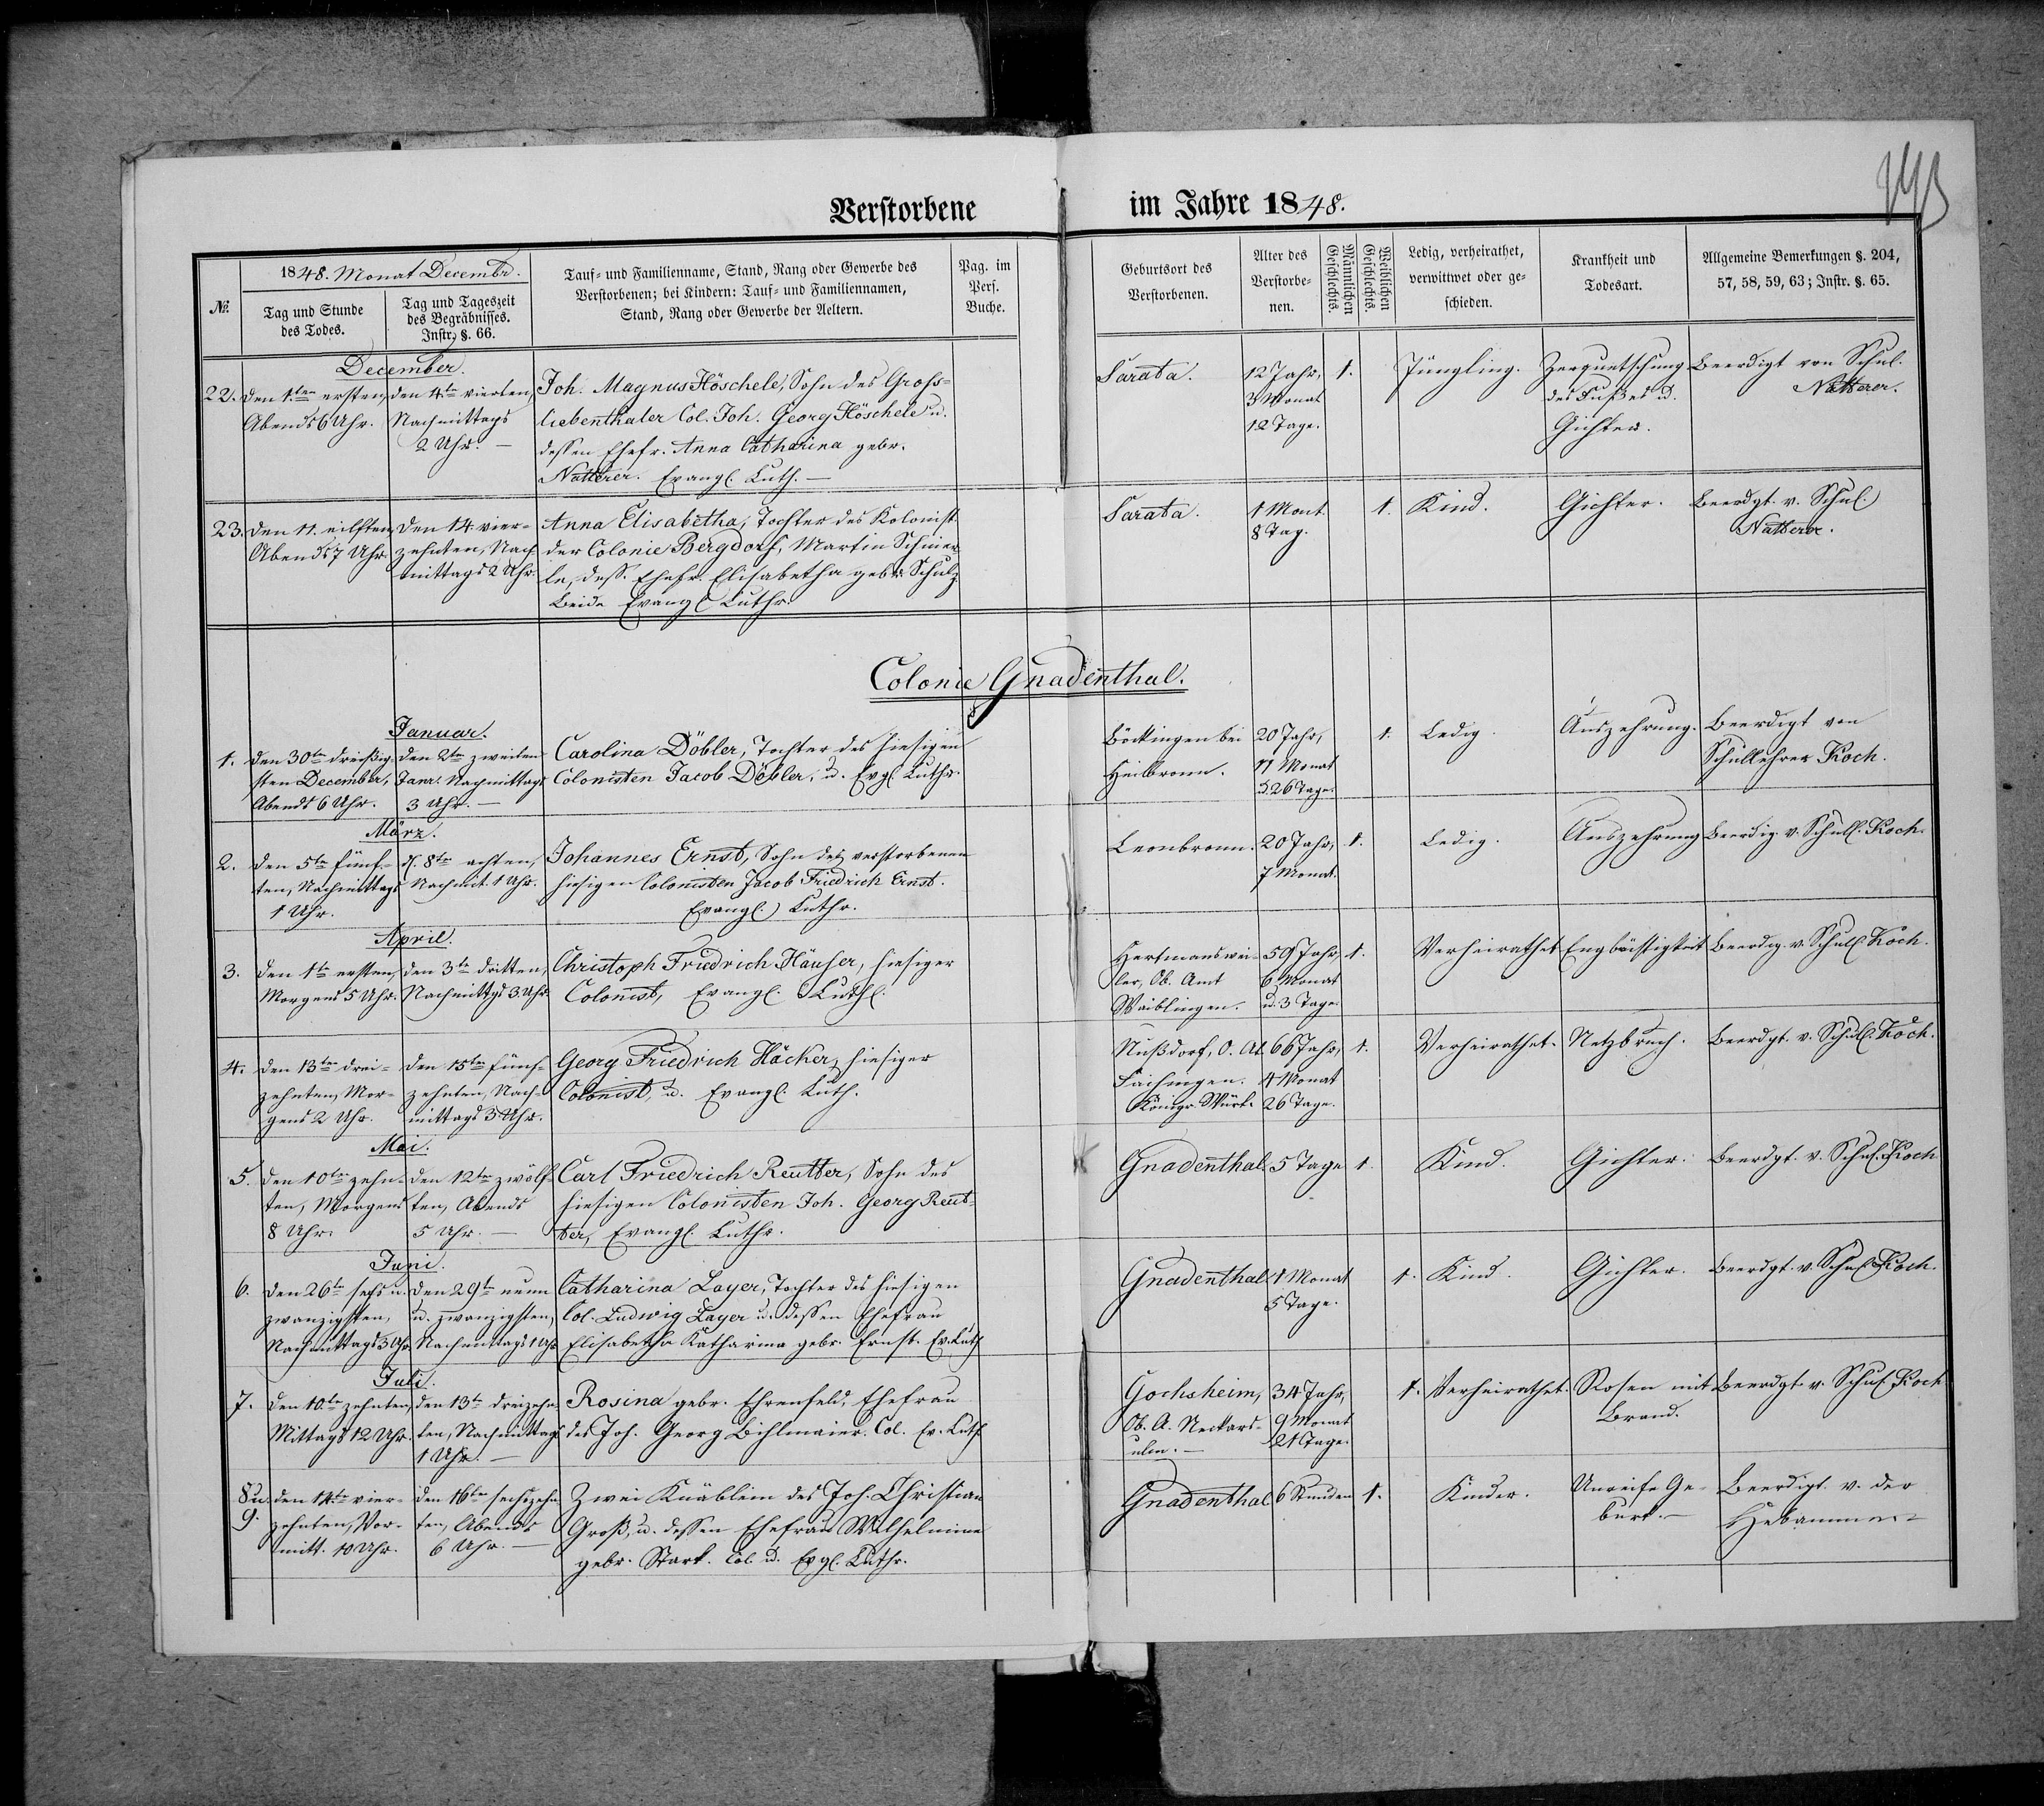 Verstorbene im Jahre 1848.
1848. Monat Decembr.
№.
Tag und Stunde
des Todes.
Tag und Tageszeit
des Begräbnisses.
Instr. §. 66.
Tauf- und Familienname, Stand, Rang oder Gewerbe des
Verstorbenen; bei Kindern: Tauf- und Familiennamen,
Stand, Rang oder Gewerbe der Aeltern.
Pag. im
Pers.
Buche.
Geburtsort des
Verstorbenen.
Alter des
Verstorbe-
nen.
Männlichen
Geschlechts.
Weiblichen
Geschlechts.
Ledig, verheirathet,
verwittwet oder ge-
schieden.
Krankheit und
Todesart.
Allgemeine Bemerkungen §. 204,
57, 58, 59, 63; Instr. §. 65.
December.
22.
den 1.ten ersten,
Abends 6 Uhr.
den 4.ten vierten,
Nachmittags
2 Uhr. —
Joh. Magnus Höschele, Sohn des Gross-
liebenthaler Col. Joh. Georg Höschele u.
dessen Ehefr. Anna Catharina gebr.
Natterer. Evangl. Luth. —
Sarata.
12 Jahr,
3 Monat
12 Tage.
1.
Jüngling.
Zerquetschung
des Fußes u.
Gichter.
Beerdigt von Schul.
Natterer.
23.
den 11. eilften,
Abends 7 Uhr.
den 14. vier-
zehnten, Nach-
mittags 2 Uhr.
Anna Elisabetha, Tochter des Kolonist.
der Colonie Bergdorf, Martin Schmier-
le, dess. Ehefr. Elisabetha gebr. Schulz
beide Evangl. Luthr.
Sarata.
1 Mont
8 Tag.
1.
Kind.
Gichter.
Beerdgt. v. Schul.
Natterer.
Colonie Gnadenthal.
Januar.
1.
den 30ten dreißig-
sten December,
Abends 6 Uhr.
den 2ten zweiten
Janr. Nachmittags
3 Uhr. —
Carolina Döbler, Tochter des hiesigen
Colonisten Jacob Döbler, u. Evgl. Luthr.
Böckingen bei
Heilbronn.
20 Jahr,
11 Monat
u. 26 Tage.
1.
Ledig.
Auszehrung.
Beerdigt von
Schullehrer Koch.
März.
2.
den 5ten fünf-
ten, Nachmittags
1 Uhr.
d. 8ten achten,
Nachmit. 1 Uhr.
Johannes Ernst, Sohn des verstorbenen
hiesigen Colonisten Jacob Friedrich Ernst.
Evangl. Luthr.
Leonbronn.
20 Jahr,
7 Monat.
1.
Ledig.
Auszehrung
Beerdig. v. Schull. Koch.
April.
3.
den 1ten ersten,
Morgens 5 Uhr.
den 3ten dritten,
Nachmittgs 3. Uhr.
Christoph Friedrich Häuser, hiesiger
Colonist, Evangl. Luthl.
Hertmanswei-
ler, Ob. Amt
Waiblingen.
59 Jahr,
6 Monat
u. 3 Tage.
1.
Verheirathet
Engbrüstigkeit
Beerdg. v. Schull. Koch.
4.
den 13ten drei-
zehnten, Mor-
gens 2 Uhr.
den 15ten fünf-
zehnten, Nach-
mittags 3 Uhr.
Georg Friedrich Häcker, hiesiger
Colonist, u. Evangl. Luth.
Nußdorf, O. At.
Faihingen.
Königr. Würt.
66 Jahr,
4 Monat
26 Tage.
1.
Verheirathet.
Netzbruch.
Beerdgt. v. Schull. Koch.
Mai.
5.
den 10ten zehn-
ten, Morgens
8 Uhr.
den 12ten zwölf-
ten, Abends
5 Uhr. —
Carl Friedrich Reutter, Sohn des
hiesigen Colonisten Joh. Georg Reut-
ter, Evangl. Luthr.
Gnadenthal.
5 Tage
1.
Kind.
Gichter.
Beerdgt. v. Schul. Koch
Juni.
6.
den 26ten sechs u.
zwanzigsten,
Nachmittags 3 Uhr,
den 29t. neun
u. zwanzigsten,
Nachmittags 1 Uhr
Catharina Layer, Tochter des hiesigen
Col. Ludwig Layer u. dessen Ehefrau
Elisabetha Katharina gebr. Ernst. Ev. Luth
Gnadenthal
1 Monat
5 Tage.
1.
Kind.
Gichter.
Beerdgt. v. Schul. Koch.
Juli.
7.
den 10ten zehnten,
Mittags 12 Uhr.
den 13t. dreizehn-
ten, Nachmittags
1 Uhr. —
Rosina gebr. Ehrenfeld, Ehefrau
des Joh. Georg Bihlmaier. Col. Ev. Luth
Gochsheim,
Ob. A. Neckars-
ulm. —
34 Jahr,
9 Monat
21 Tage.
1.
Verheirathet.
Rosen mit
Brand.
Beerdgt. v. Schul. Koch
8 u.
9.
den 14ten vier-
zehnten, Vor-
mitt. 10 Uhr.
den 16ten sechszehn-
ten, Abends
6 Uhr. —
Zwei Knäblein des Joh. Christian
Groß, u. dessen Ehefrau Wilhelmine
gebr. Stark. Col. u. Evgl. Luthr.
Gnadenthal
6 Stunden
1.
Kinder.
Unreife Ge-
burt. —
Beerdigt. v. der
Hebammen